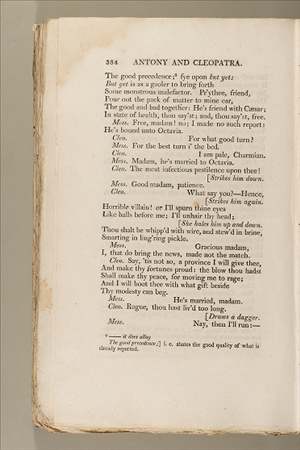 384 ANTONY AND CLEOPATRA.
The good precedence;⁸ fye upon but yet:
But yet is as a gaoler to bring forth
Some monstrous malefactor. Pr'ythee, friend,
Pour out the pack of matter to mine ear,
The good and bad together: He's friend with Cæsar;
In state of health, thou say'st; and, thou say'st, free.
Mess. Free, madam! no; I made no such report:
He's bound unto Octavia.
Cleo. For what good turn?
Mess. For the best turn i' the bed.
Cleo. I am pale, Charmian.
Mess. Madam, he's married to Octavia.
Cleo. The most infectious pestilence upon thee!
[Strikes him down.
Mess. Good madam, patience.
Cleo. What say you?—Hence,
[Strikes him again.
Horrible villain! or I'll spurn thine eyes
Like balls before me; I'll unhair thy head;
[She hales him up and down.
Thou shalt be whipp'd with wire, and stew'd in brine,
Smarting in ling'ring pickle.
Mess. Gracious madam,
I, that do bring the news, made not the match.
Cleo. Say, 'tis not so, a province I will give thee,
And make thy fortunes proud: the blow thou hadst
Shall make thy peace, for moving me to rage;
And I will boot thee with what gift beside
Thy modesty can beg.
Mess. He's married, madam.
Cleo. Rogue, thou hast liv'd too long.
[Draws a dagger.
Mess. Nay, then I'll run:—
⁸ —— it does allay
The good precedence;] i. e. abates the good quality of what is
already reported.